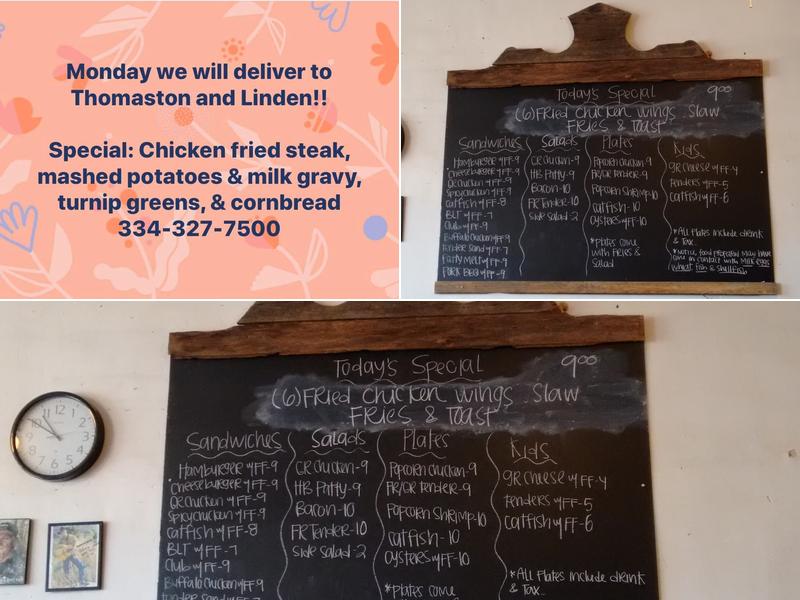 Monday we will deliver to
Thomaston and Linden!!
Special: Chicken fried steak,
mashed potatoes & milk gravy,
turnip greens, & cornbread
334-327-7500
Today's Special 9⁰⁰
(6) Fried chicken wings Slaw
Fries & Toast
Sandwiches
Hamburger w/FF-9
Cheeseburger w/FF-9
GR chicken w/FF-9
Spicy chicken w/FF-9
Catfish w/FF-8
BLT w/FF-7
Club w/FF-9
Buffalo Chicken w/FF-9
Tender Sand w/FF-7
Patty Melt w/FF-9
Pork BBQ w/FF-9
Salads
GR Chicken-9
HB Patty-9
Bacon-10
FR Tender-10
Side Salad-2
Plates
Popcorn chicken-9
FR/GR Tender-9
Popcorn Shrimp-10
Catfish-10
Oysters w/FF-10
*Plates come
with Fries &
Salad
Kids
GR cheese w/FF-4
Tenders w/FF-5
Catfish w/FF-6
*All Plates include drink
& Tax.
*Notice, food prepared may have
come in contact with Milk eggs
wheat fish & shellfish
Today's Special 9⁰⁰
(6) Fried chicken wings Slaw
Fries & Toast
Sandwiches
Hamburger w/FF-9
Cheeseburger w/FF-9
GR chicken w/FF-9
Spicy chicken w/FF-9
Catfish w/FF-8
BLT w/FF-7
Club w/FF-9
Buffalo Chicken w/FF-9
Tender Sand w/FF-
Salads
GR Chicken-9
HB Patty-9
Bacon-10
FR Tender-10
Side Salad-2
Plates
Popcorn chicken-9
FR/GR Tender-9
Popcorn Shrimp-10
Catfish-10
Oysters w/FF-10
*Plates come
Kids
GR cheese w/FF-4
Tenders w/FF-5
Catfish w/FF-6
*All Plates include drink
& Tax.